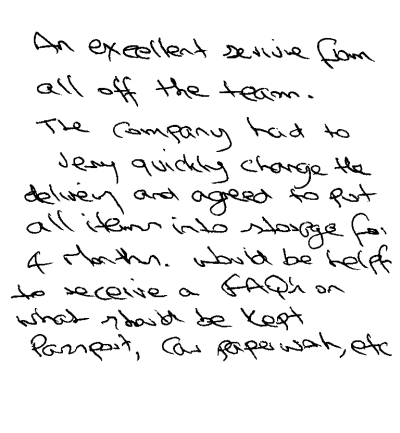 An excellent service from
all off the team.
The Company had to
very quickly change the
delivery and agreed to put
all items into storage for
4 Months. Would be helpf
to receive a FAQ's on
what should be kept
Passport, Car paperwork, etc